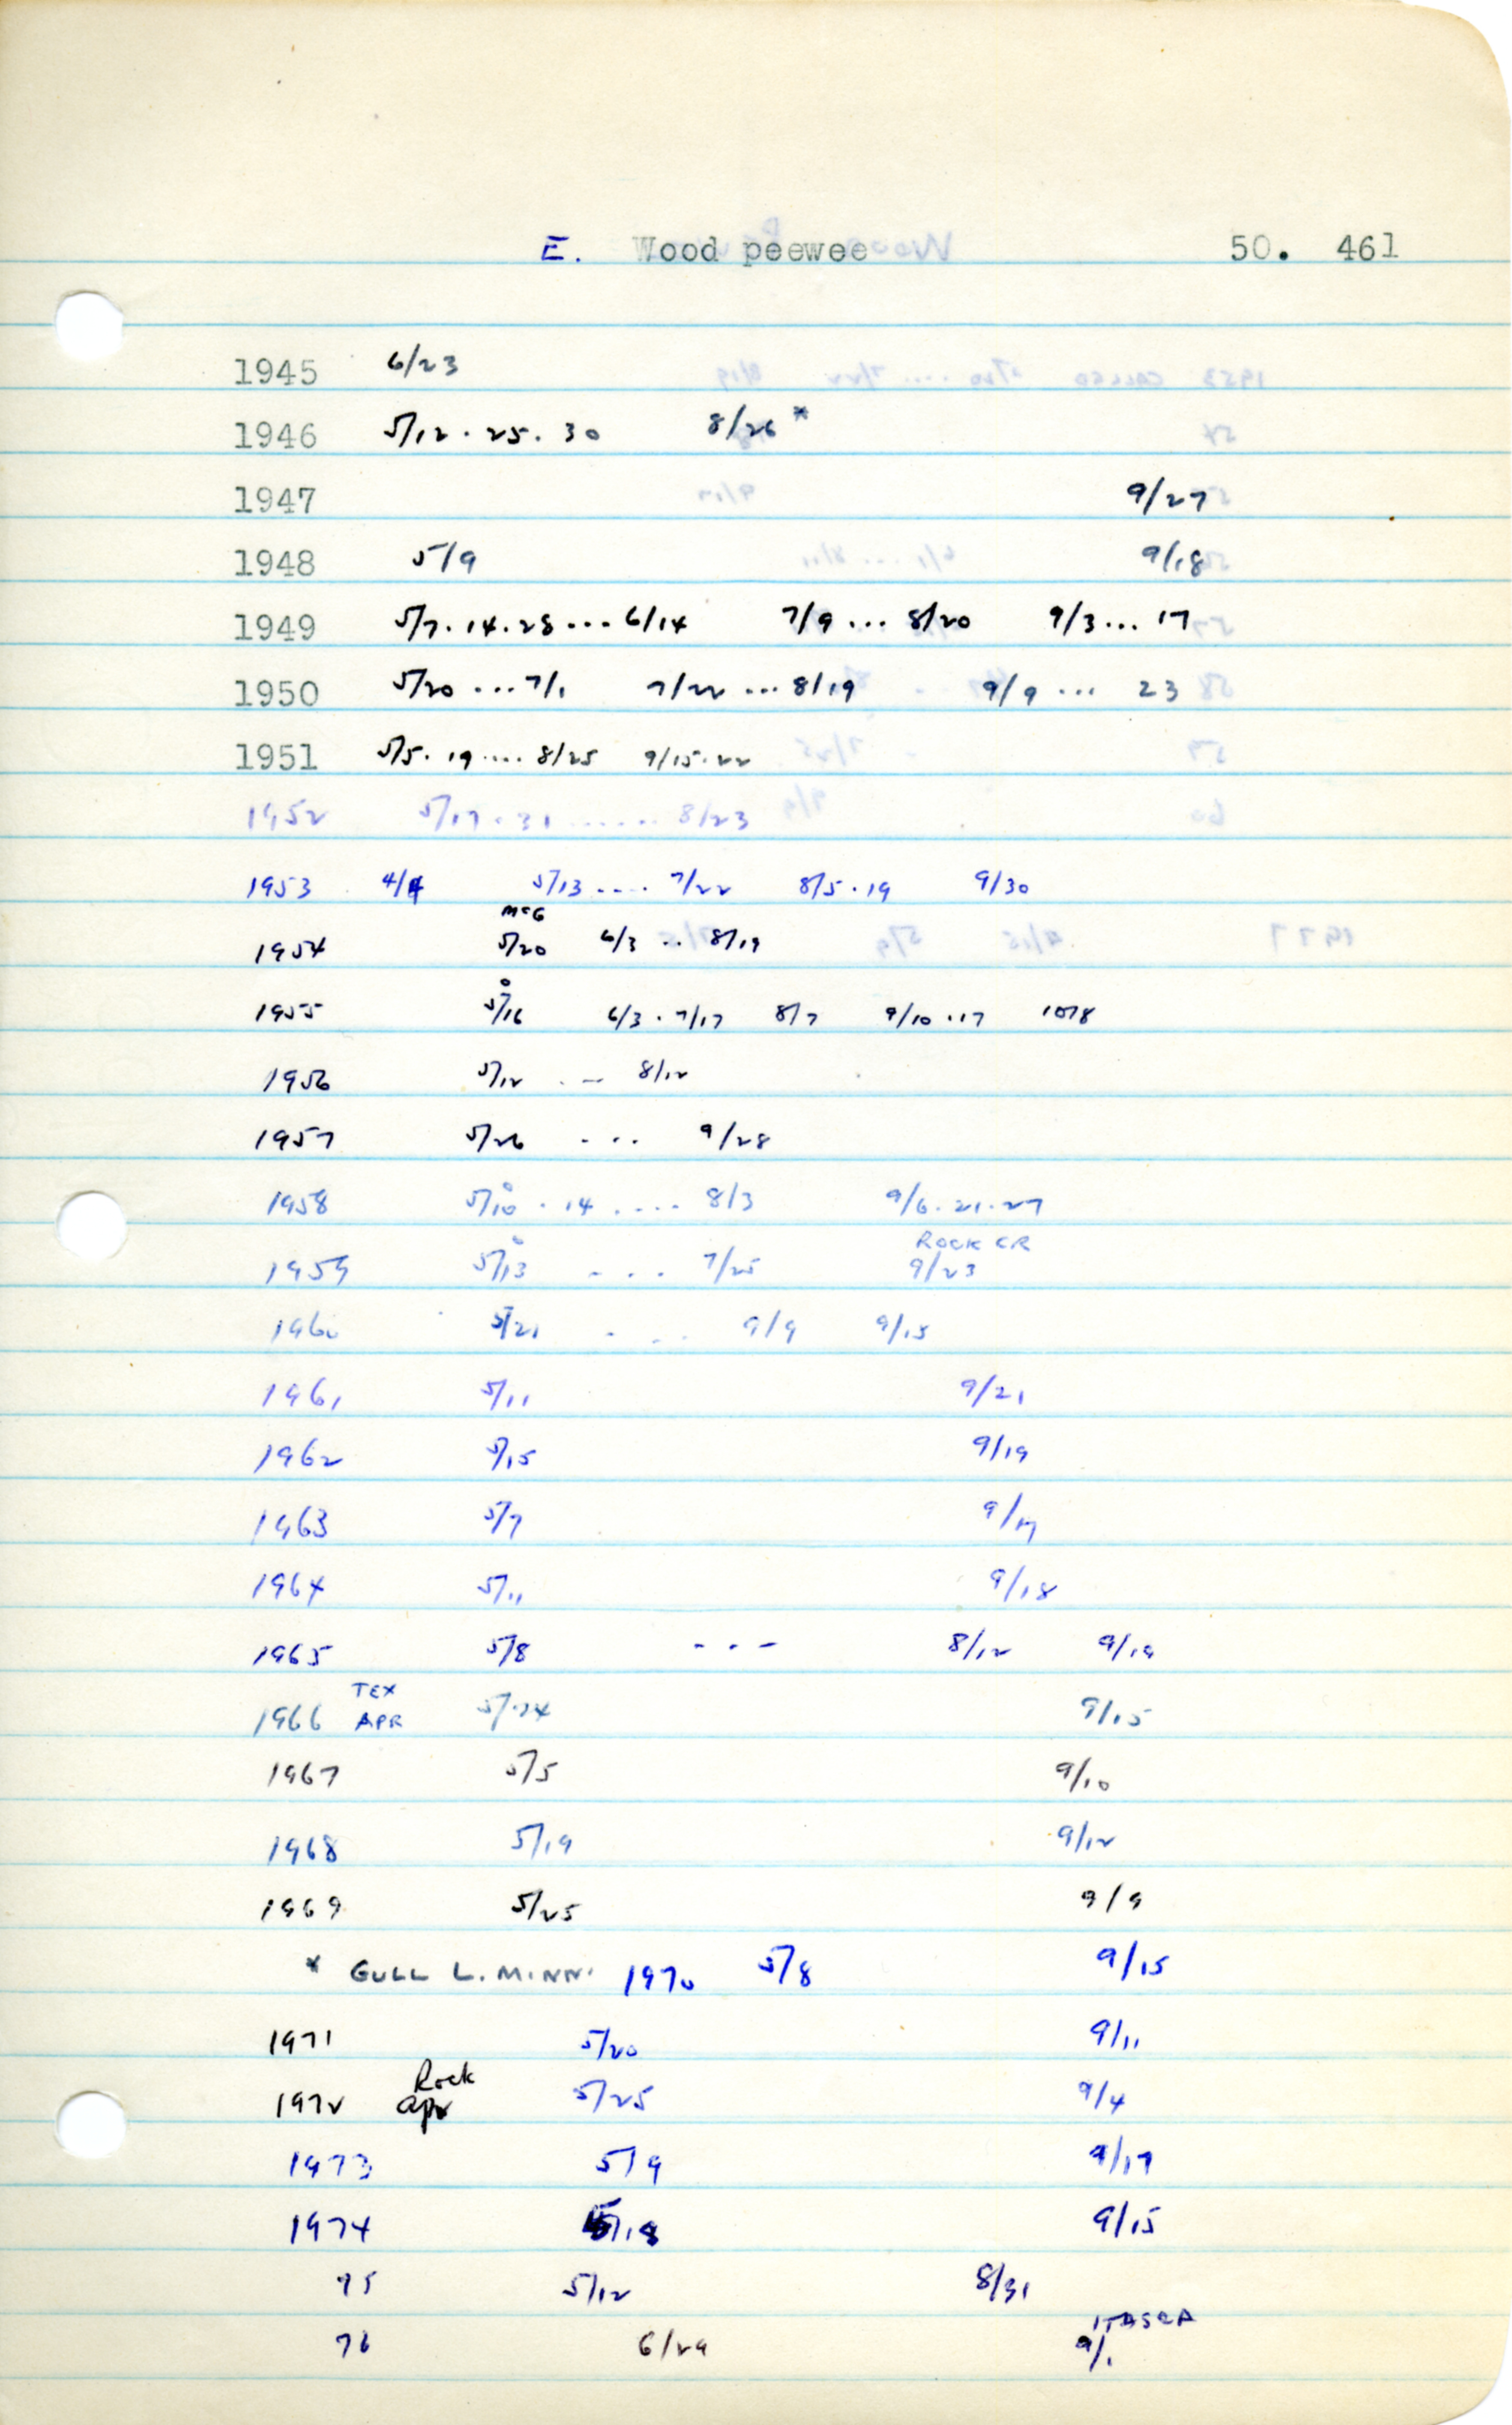 E. Wood peewee 50. 461
1945 6/23
1946 5/12 . 25 . 30 8/26 *
1947 9/27
1948 5/9 9/18
1949 5/7 . 14 . 28 ... 6/14 7/9 ... 8/20 9/3 ... 17
1950 5/20 ... 7/1 7/22 ... 8/19 9/9 ... 23
1951 5/5 . 19 .... 8/25 9/15 . 22
1952 5/17 . 31 ...... 8/23
1953 4/4 5/13 .... 7/22 8/5 . 19 9/30
McG
1954 5/20 6/3 .. 8/19
1955 5/16 6/3 . 7/17 8/7 9/10 . 17 10/8
1956 5/12 . — 8/12
1957 5/26 ... 9/28
1958 5/10 . 14 .... 8/3 9/6 . 21 . 27
ROCK CR
1959 5/13 ... 7/25 9/23
1960 5/21 ... 9/9 9/15
1961 5/11 9/21
1962 5/15 9/19
1963 5/7 9/17
1964 5/11 9/18
1965 5/8 - - - 8/12 9/19
TEX
1966 APR 5/24 9/15
1967 5/5 9/10
1968 5/19 9/12
1969 5/25 9/9
* GULL L. MINN. 1970 5/8 9/15
1971 5/20 9/11
Rock
1972 Apr 5/25 9/4
1973 5/9 9/17
1974 5/18 9/15
75 5/12 8/31
ITASCA
76 6/29 9/1